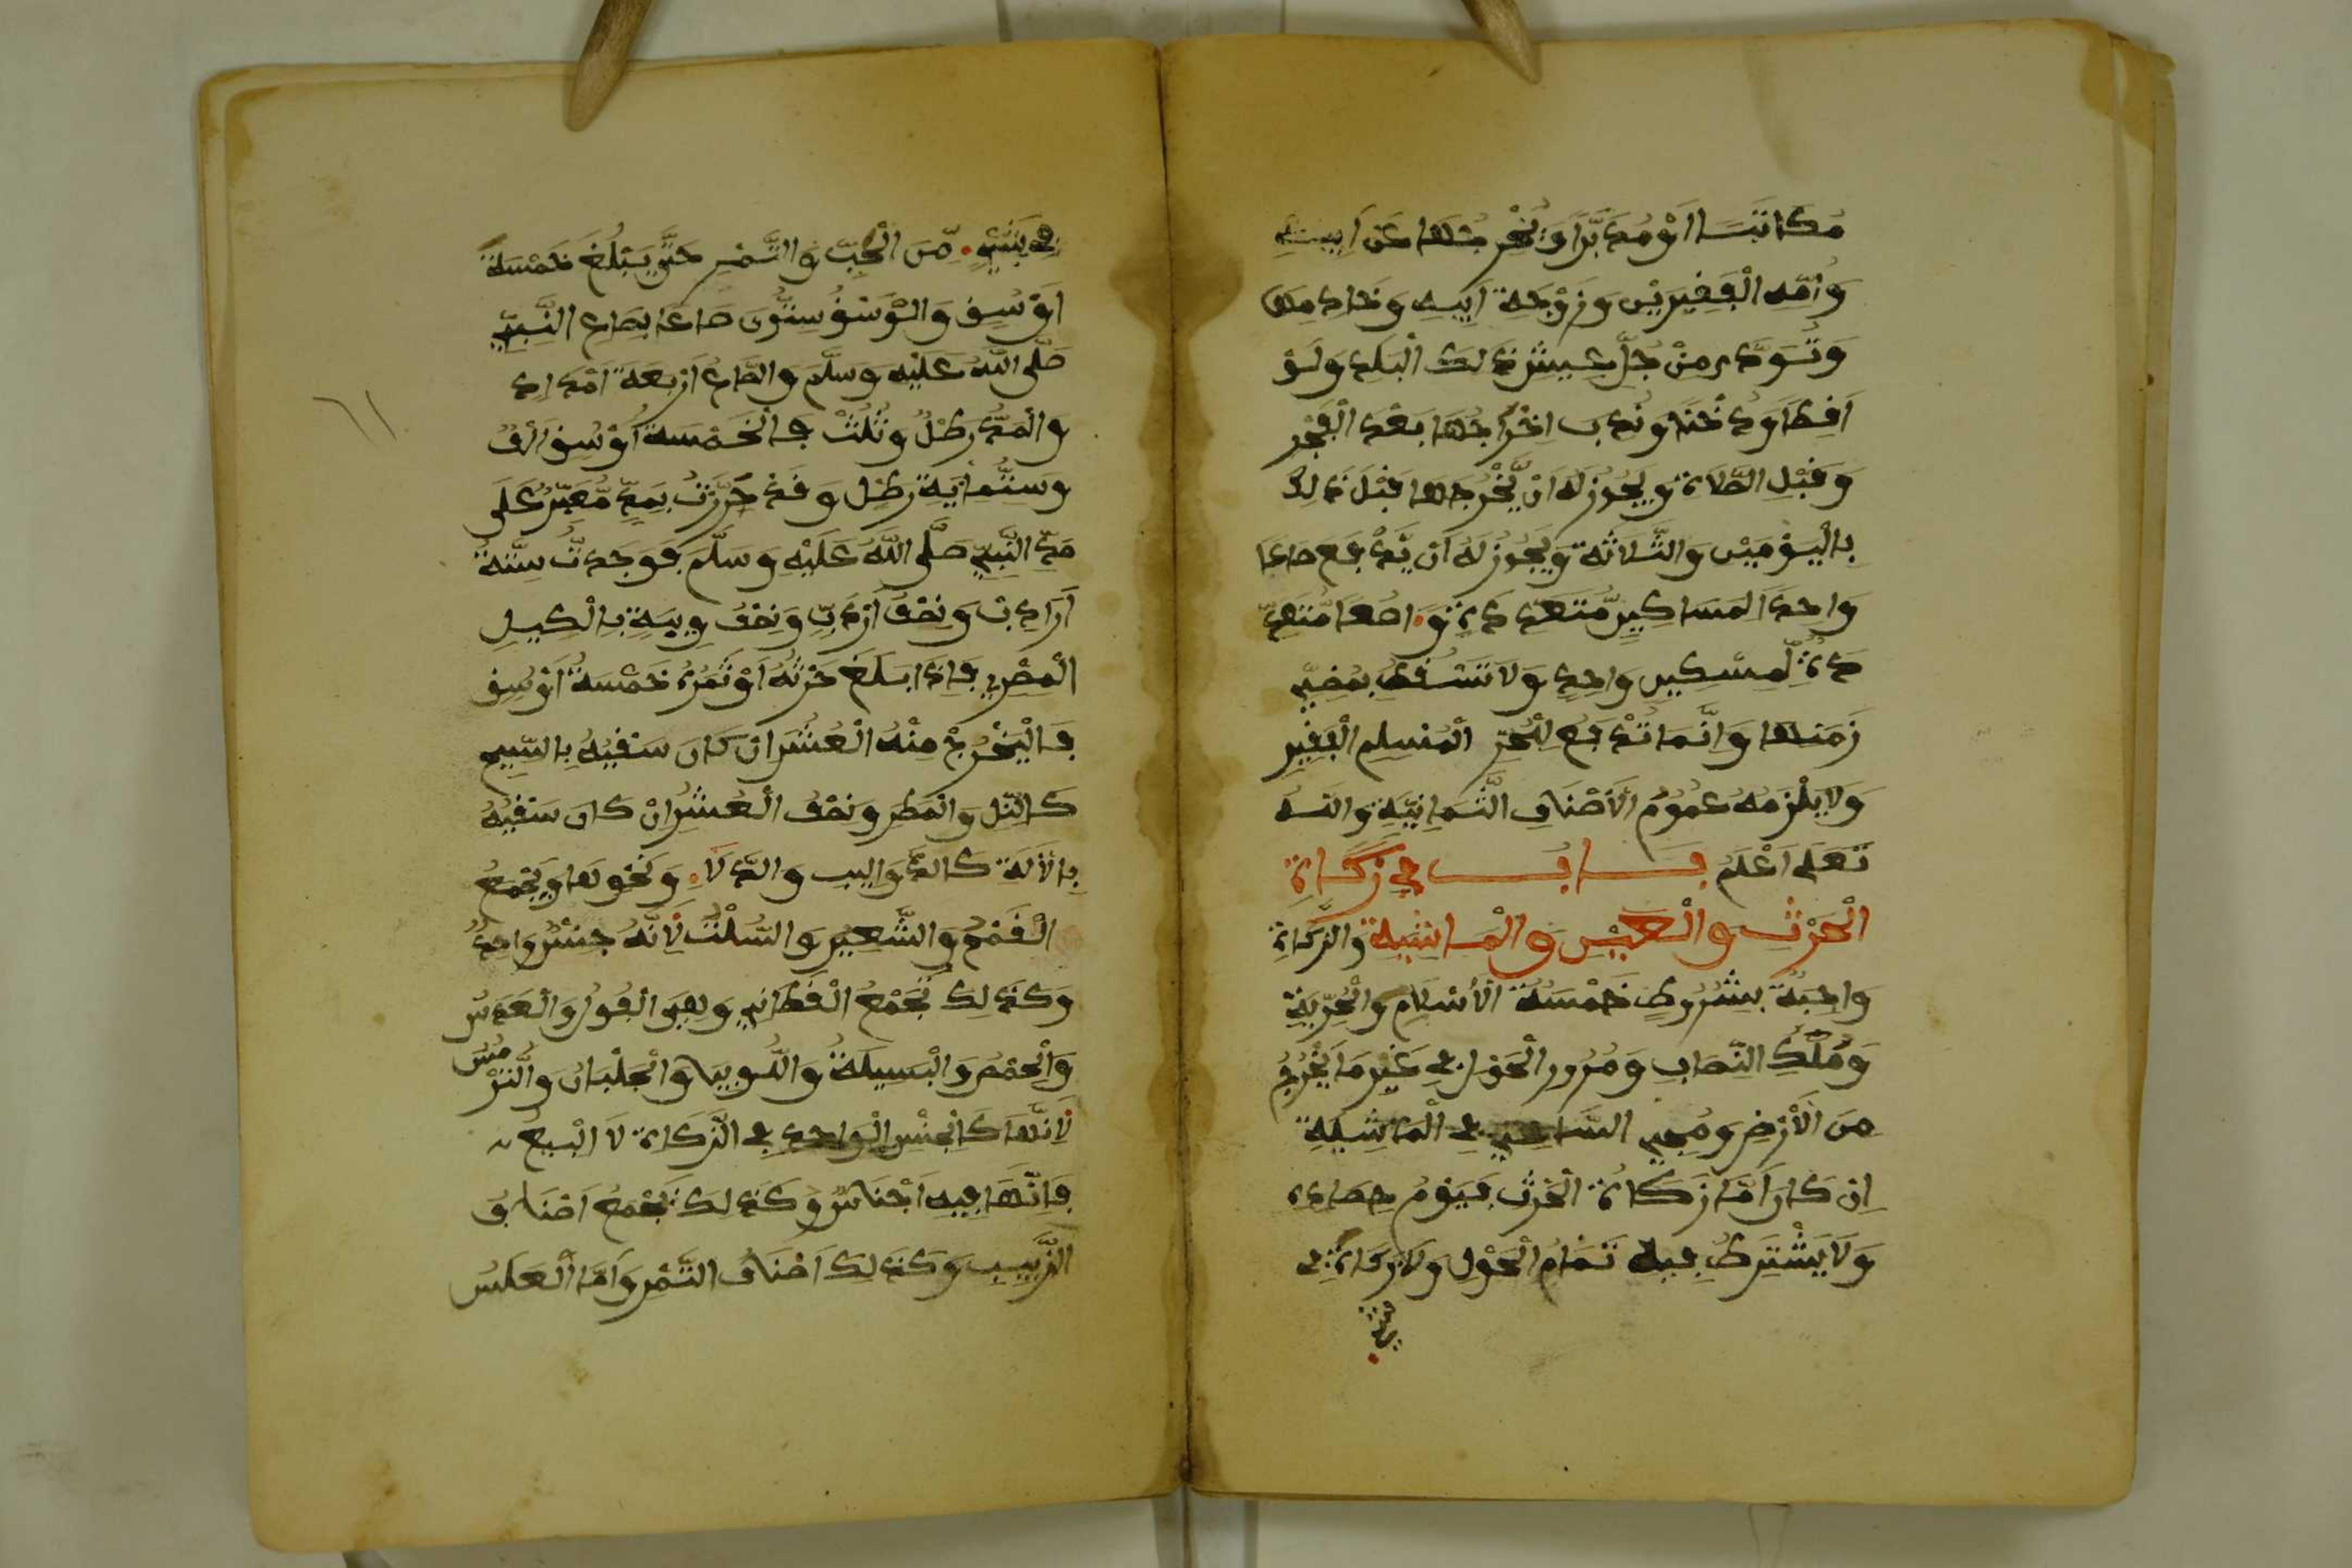 مُكَاتَبًا اَوْ مُدَبَّرًا وَيُخْرِجُهَا عَنْ اَبِيهِ
وَاُمِّهِ الْفَقِيرَيْنِ وَزَوْجَةِ اَبِيهِ وَخَادِمِهَا
وَتُؤَدَّى مِنْ جُلِّ عَيْشِ ذَلِكَ الْبَلَدِ وَلَوْ
اَقِطًا وَدُخْنًا وَنُدِبَ اِخْرَاجُهَا بَعْدَ الْفَجْرِ
وَقَبْلَ الصَّلَاةِ وَيَجُوزُ لَهُ اَنْ يُّخْرِجَهَا قَبْلَ ذَلِكَ
بِالْيَوْمَيْنِ وَالثَّلَاثَةِ وَيَجُوزُ لَهُ اَنْ يَّدْفَعَ صَاعًا
وَاحِدًا لِمَسَاكِينَ مُّتَعَدِّدَةٍ وَ اصُعًا مُّتَعَدِّ
دَةً لِّمِسْكِينٍ وَاحِدٍ وَلَا تَسْقُطُ بِمُضِيِّ
زَمَنِهَا وَاِنَّمَا تُدْفَعُ لِلْحُرِّ الْمُسْلِمِ الْفَقِيرِ
وَلَا يَلْزَمُهُ عُمُومُ الْاَصْنَافِ الثَّمَانِيَّةِ وَاللَّهُ
تَعَلَى اَعْلَمُ بَابُ فِي زَكَاةِ
الْحَرْثِ وَالْعَيْنِ وَالْمَاشِيَةِ وَالزَّكَاةُ
وَاجِبَةٌ بِشُرُوطٍ خَمْسَةٍ الْاِسْلَامِ وَالْحُرِّيَةِ
وَمُلْكِ النِّصَابِ وَمُرُورِ الْحَوْلِ فِي غَيْرِ مَا يَخْرُجُ
مِنَ الْاَرْضِ وَمَجِيءِ السَّاعِي فِي الْمَاشِيَةِ
اِنْ كَانَ اَمَّا زَكَاةُ الْحَرْثِ فَيَوْمُ حَصَادِهِ
وَلَا يَشْتَرِطُ فِيهِ تَمَامُ الْحَوْلِ وَلَا زَكَاةَ فِي
شيء
فِي شَيْءٍ مِّنَ الْحَبِّ وَالتَّمْرِ حَتَّى يَبْلُغَ خَمْسَةَ
اَوْسُقٍ وَالْوَسْقُ سِتُّونَ صَاعًا بِصَاعِ النَّبِيِّ
صَلَّى اللَّهُ عَلَيْهِ وَسَلَّمَ وَالصَّاعُ اَرْبَعَةُ اَمْدَادٍ
وَالْمُدُّ رِطْلٌ وَثُلُثٌ فَالْخَمْسَةُ اَوْسُقٍ اَلْفُ
وَسِتُّمِايَةِ رِطْلٍ وَقَدْ حَرَّرْتُ بِمُدٍّ مُّعَيَّرٍ عَلَى
مُدِّ النَّبِيِّ صَلَّى اللَّهُ عَلَيْهِ وَسَلَّمَ فَوَجَدتُّ سِتَّةَ
اَرَادِبَ وَنِصْفَ اَرْدَبٍّ وَنِصْفُ وِيبَةٍ بِالْكَيْلِ
الْمِصْرِيِّ فَاِذَا بَلَغَ حَرْثُهُ اَوْ تَمْرُهُ خَمْسَةَ اَوْسُقٍ
فَالْيُخْرِجْ مِنْهُ الْعُشُرَ اِنْ كَانَ سَقْيُهُ بِالسِّيحِ
كَالنِّيلِ وَالْمَطَرِ وَنِصْفُ الْعُشُرِ اِنْ كَانَ سَقْيُهُ
بِالْاَلَةِ كَالدَّوَالِيبِ وَالدِّلَاءِ وَنَحْوِهَا وَيَجْمَعُ
الْقَمْحُ وَالشَّعِيرُ وَالسُّلْتُ لِاَنَّهُ جِنْسٌ وَاحِدٌ
وَكَذَلِكَ تُجْمَعُ الْقَطَانِي وَهِيَ الْفُولُ وَالْعَدَسُ
وَالْحِمَّصُ وَالْبَسِيلَةُ وَاللُّوبِيا وَالْجُلْبَانُ وَالتُّرْمُسُ
لِاَنَّهَا كَالْجِنْسِ الْوَاحِدِ فِي الزَّكَاةِ لَا الْبَيْعِ
فَاِنَّهَا فِيهِ اَجْنَاسٌ وَكَذَلِكَ تَجْمَعُ اَصْنَافُ
الزَّبِيبِ وَكَذَلِكَ اَصْنَافُ التَّمْرِ وَاَمَّا الْعَلَسُ